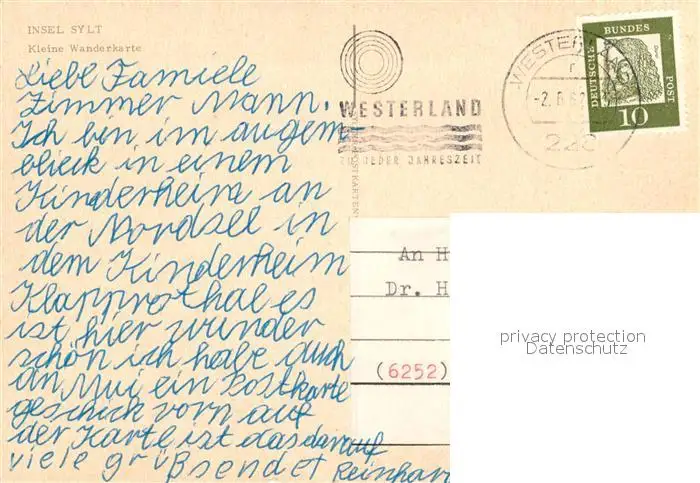 INSEL SYLT
Kleine Wanderkarte
Liebe Famiele
Zimmer Mann.
Ich bin im augem-
blick in einem
Kinderheim an
der Nordsee in
dem Kinderheim
Klapprothal es
ist hier wunder
schön ich habe auch
an Mui ein Postkarte
geschick vorn auf
der Karte ist das darauf
viele grüßsendet Reinhar
WESTERLAND
ZU JEDER JAHRESZEIT
WESTER
DEUTSCHE BUNDES POST
10
An H
Dr. H
(6252)
privacy protection
Datenschutz